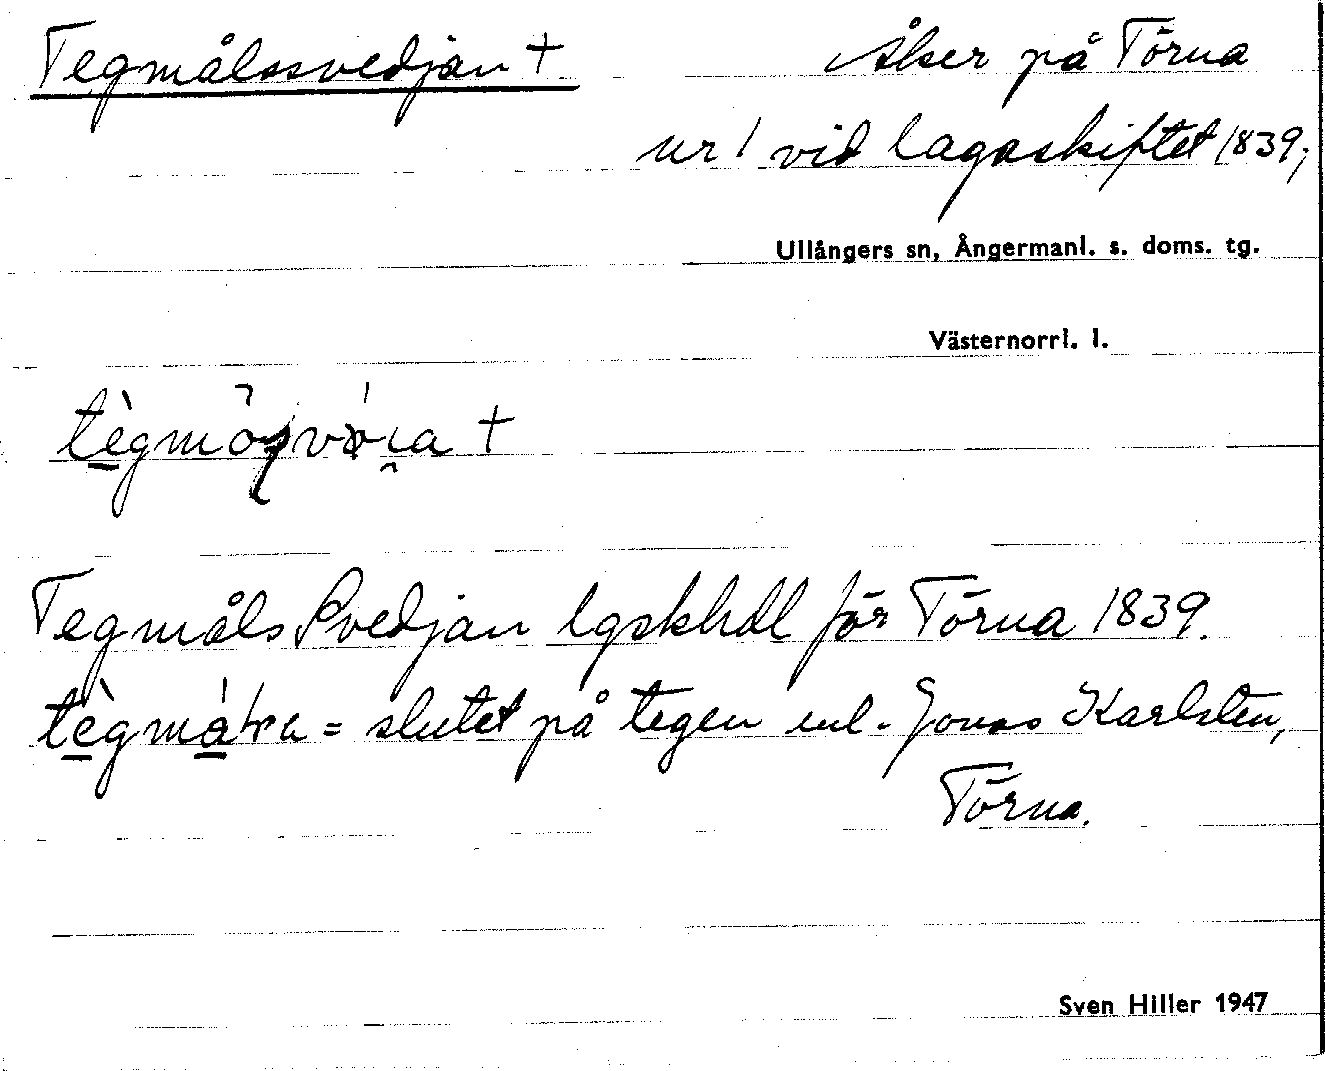 Tegmålssvedjan †
Åker på Törna
nr 1 vid lagaskiftet 1839;
Ullångers sn, Ångermanl. s. doms. tg.
Västernorrl. l.
†
Tegmåls Svedjan lgskhdl för Törna 1839.
= slutet på tegen enl. Jonas Karlsten,
Törna.
Sven Hiller 1947